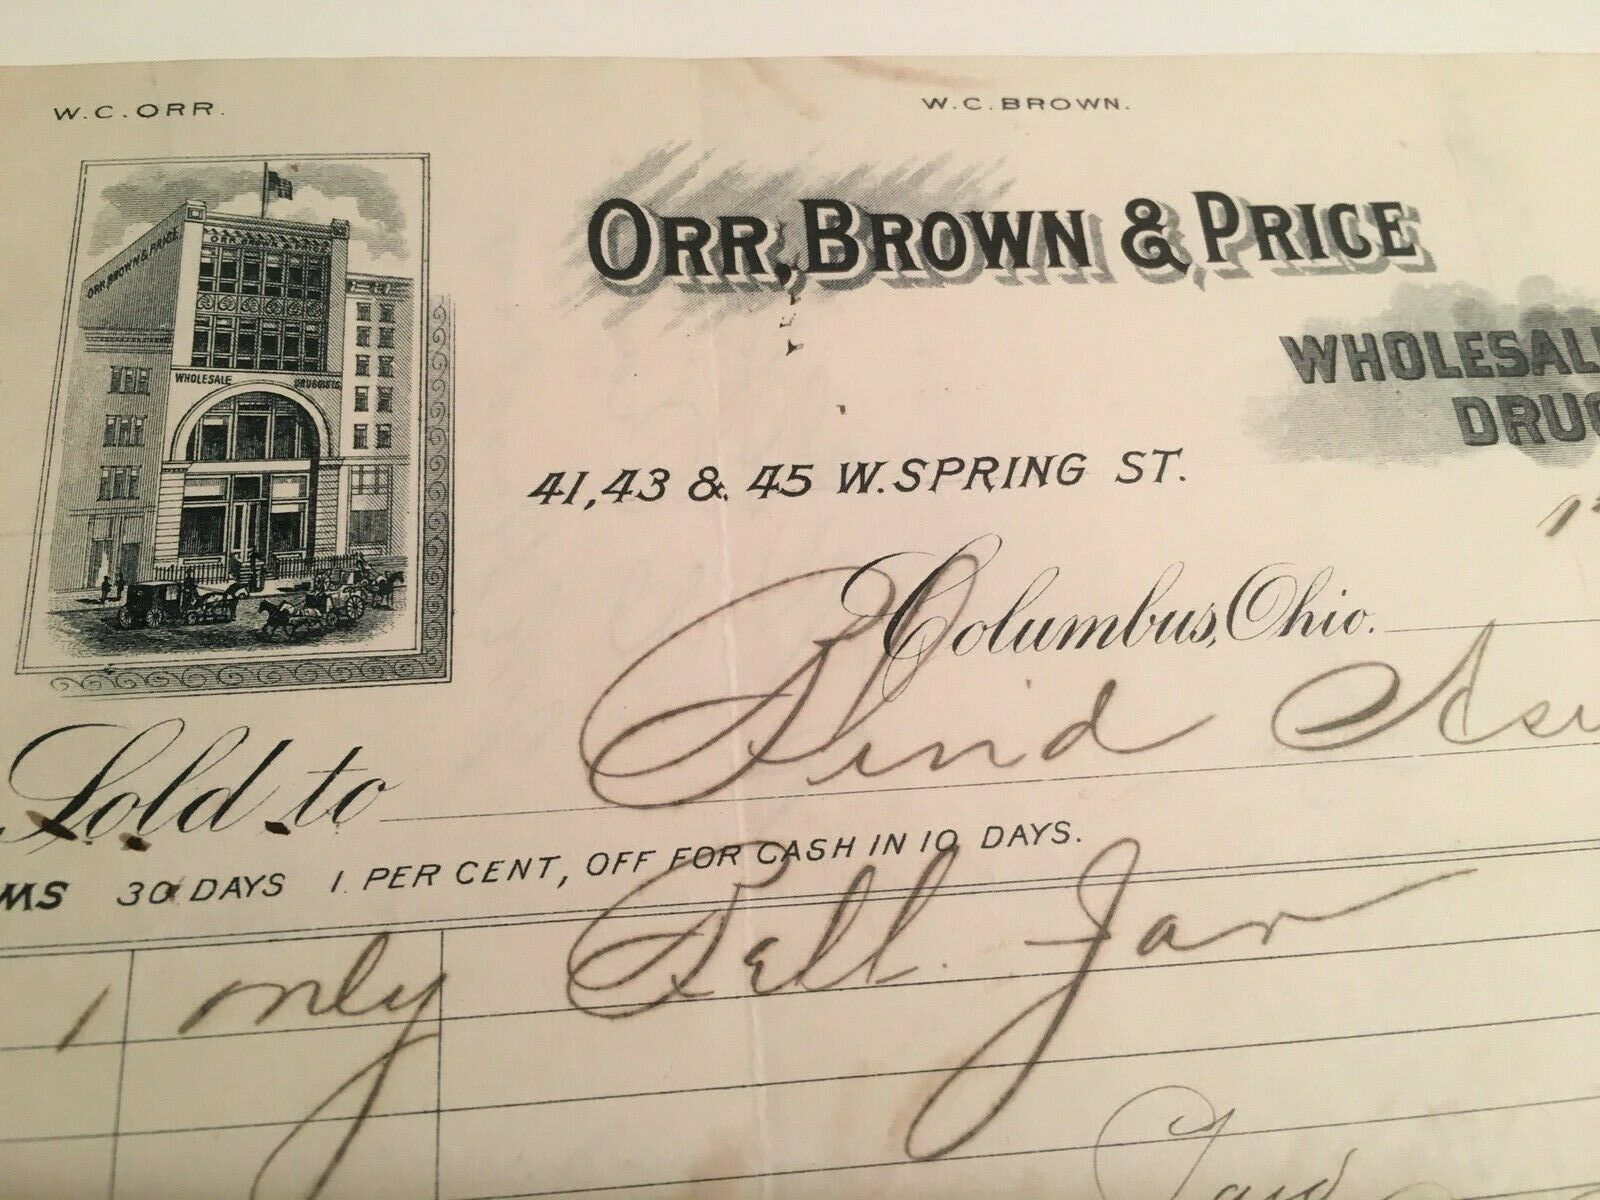 W.C. ORR.
W.C. BROWN.
ORR, BROWN & PRICE
ORR, BROWN & PRICE.
WHOLESALE DRUGGISTS
WHOLESAL
DRUG
41, 43 & 45 W. SPRING ST.
Columbus, Ohio.
Sold to Blind
MS 30 DAYS 1 PER CENT, OFF FOR CASH IN 10 DAYS.
1 only Bell Jar
Paid